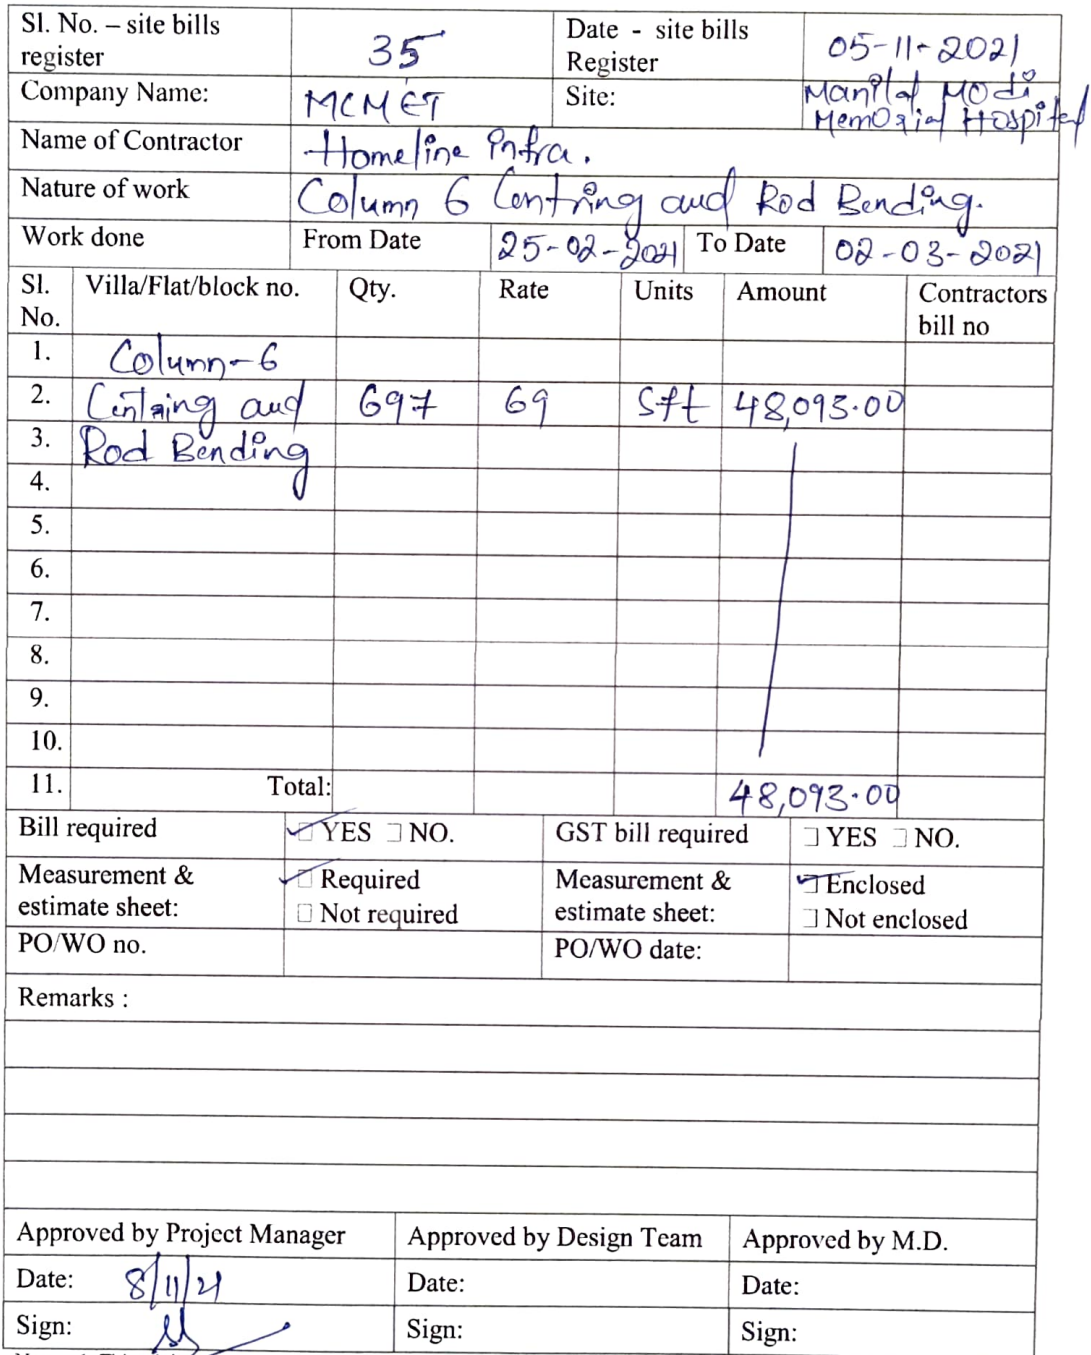 Sl. No. – site bills register 35 Date - site bills Register 05-11-2021
Company Name: MCMET Site: Manilal Modi Memorial Hospital
Name of Contractor Homeline infra.
Nature of work Column 6 Centring and Rod Bending.
Work done From Date 25-02-2021 To Date 02-03-2021
Sl. No. Villa/Flat/block no. Qty. Rate Units Amount Contractors bill no
1. Column-6
2. Centring and 697 69 Sft 48,093.00
3. Rod Bending
4.
5.
6.
7.
8.
9.
10.
11. Total: 48,093.00
Bill required YES NO. GST bill required YES NO.
Measurement & estimate sheet: Required Not required Measurement & estimate sheet: Enclosed Not enclosed
PO/WO no. PO/WO date:
Remarks :
Approved by Project Manager Approved by Design Team Approved by M.D.
Date: 8/11/21 Date: Date:
Sign: Sign: Sign: